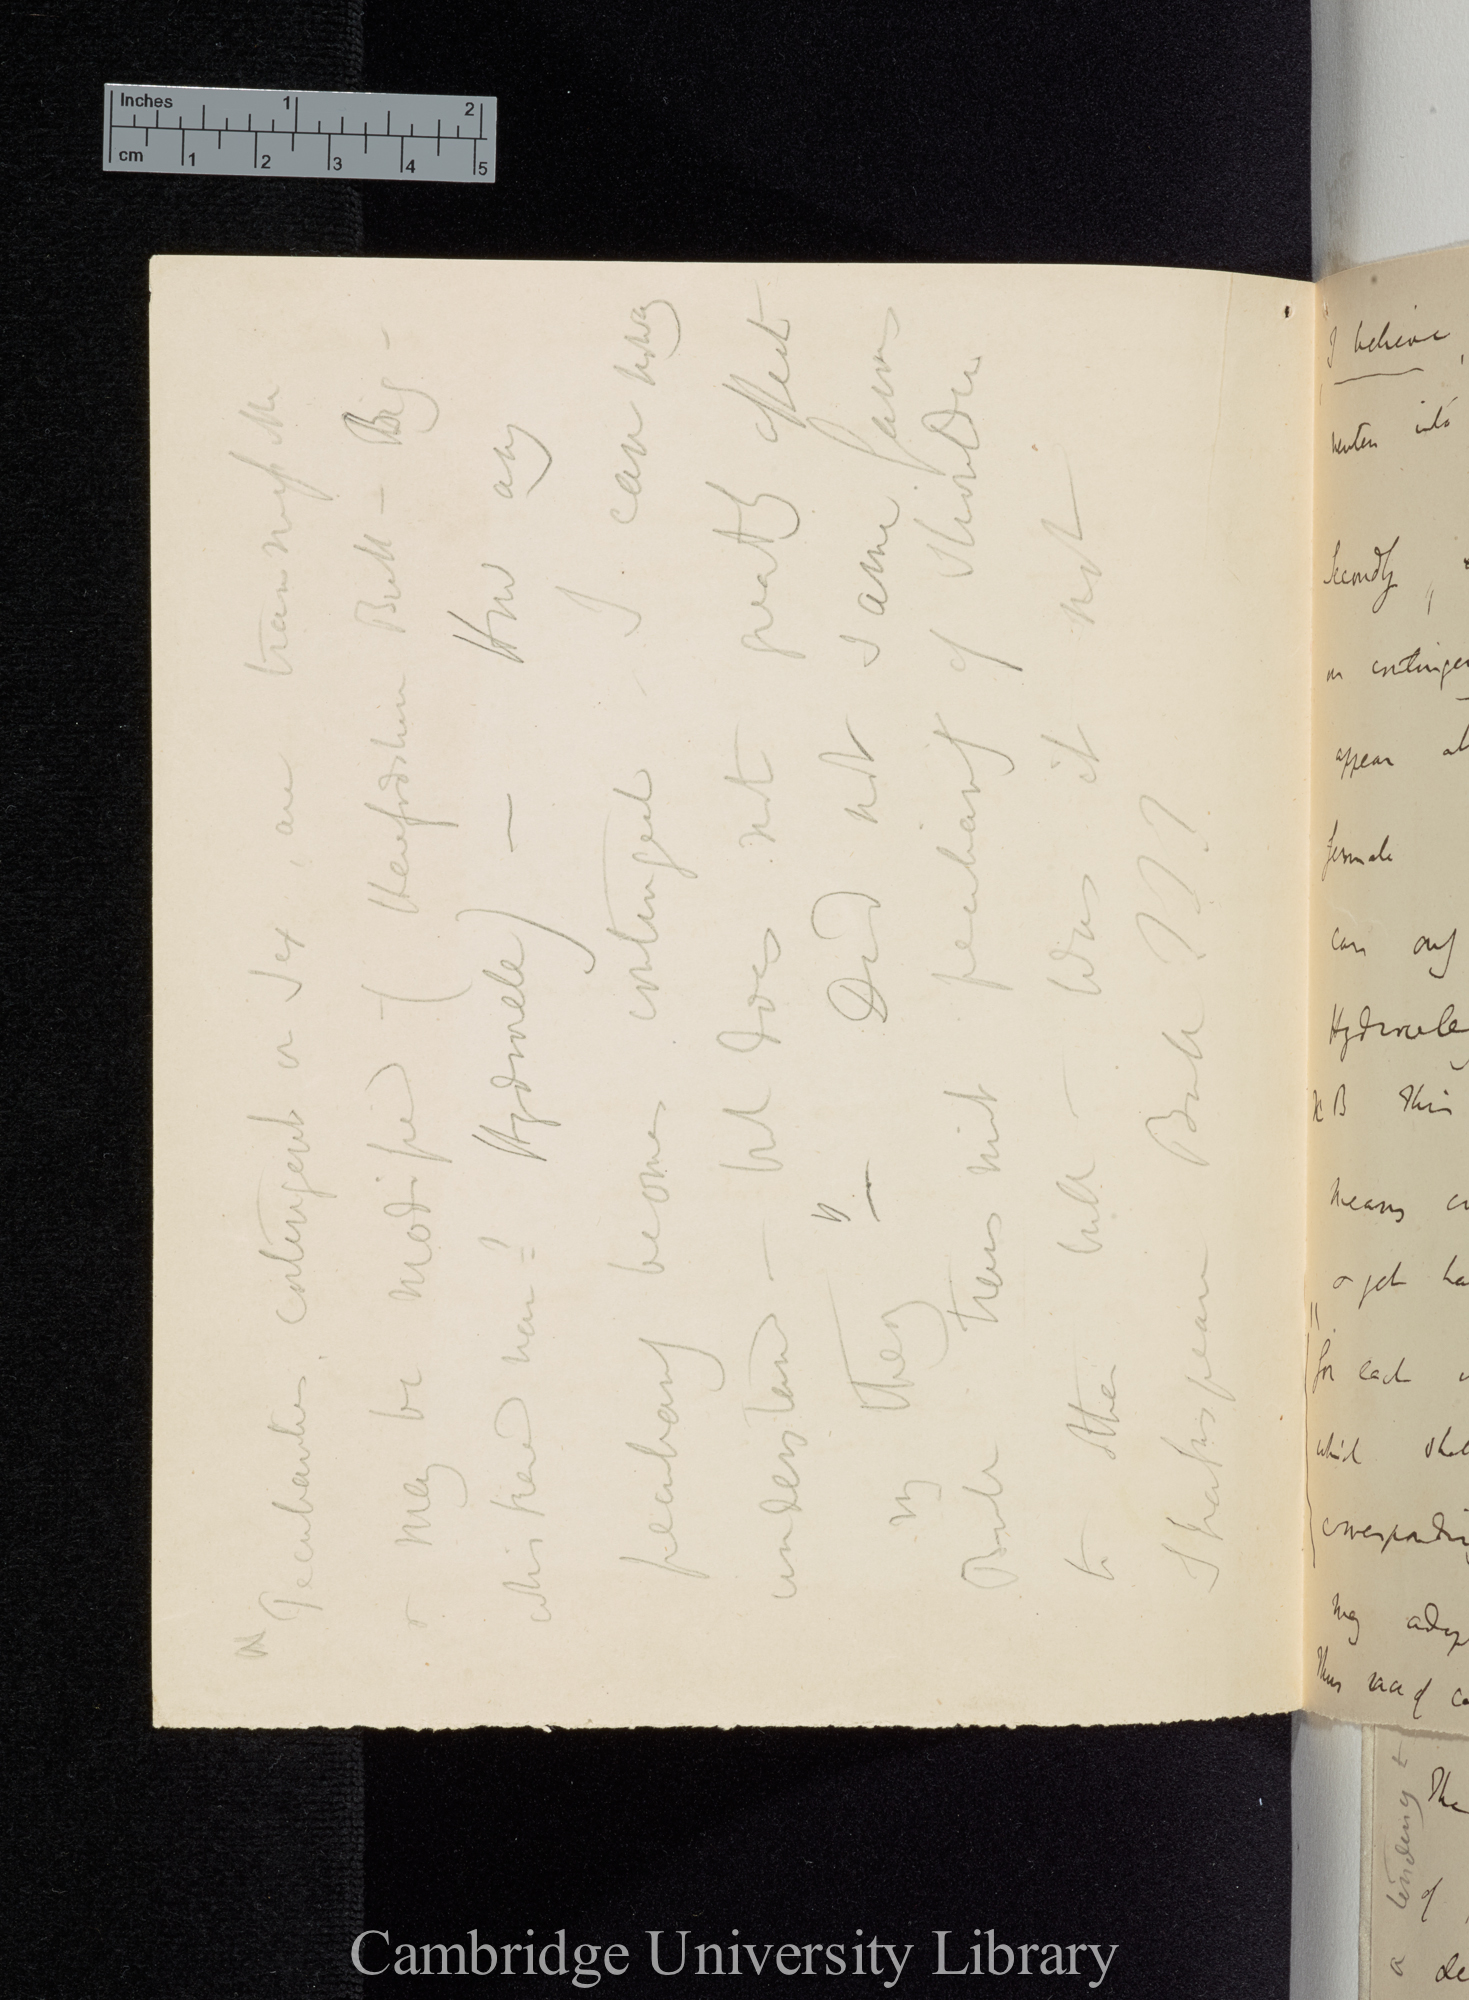 Inches 1 2
cm 1 2 3 4 5
Peculiarities, contingent on Sex, are transmissible
& may be modified — ( Herefordshire Bull — Big-
whiskered man? Hydrocele ) — How any
peculiarity becomes contingent, I can now
understand — but does not greatly affect
my They " — Did not same
Bull transmit peculiarity of Shoulder
to other bull — Was it not
Shakspeare Bull ???
I believe
neuter into
Secondly,
on contingen
appear al
female
can any
Hydrocele
N B This
means
& yet ha
for each
which shal
correspondin
may adop
Thus race of
The
of
a tendency t
Cambridge University Library